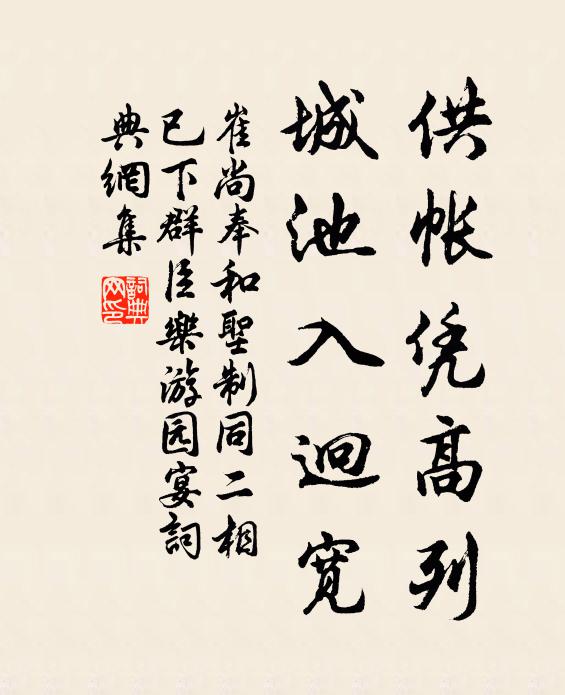 供帐凭高列
城池入迥宽
崔尚奉和聖制同二相
已下群臣樂游园宴詞
典網集
詞典
网印